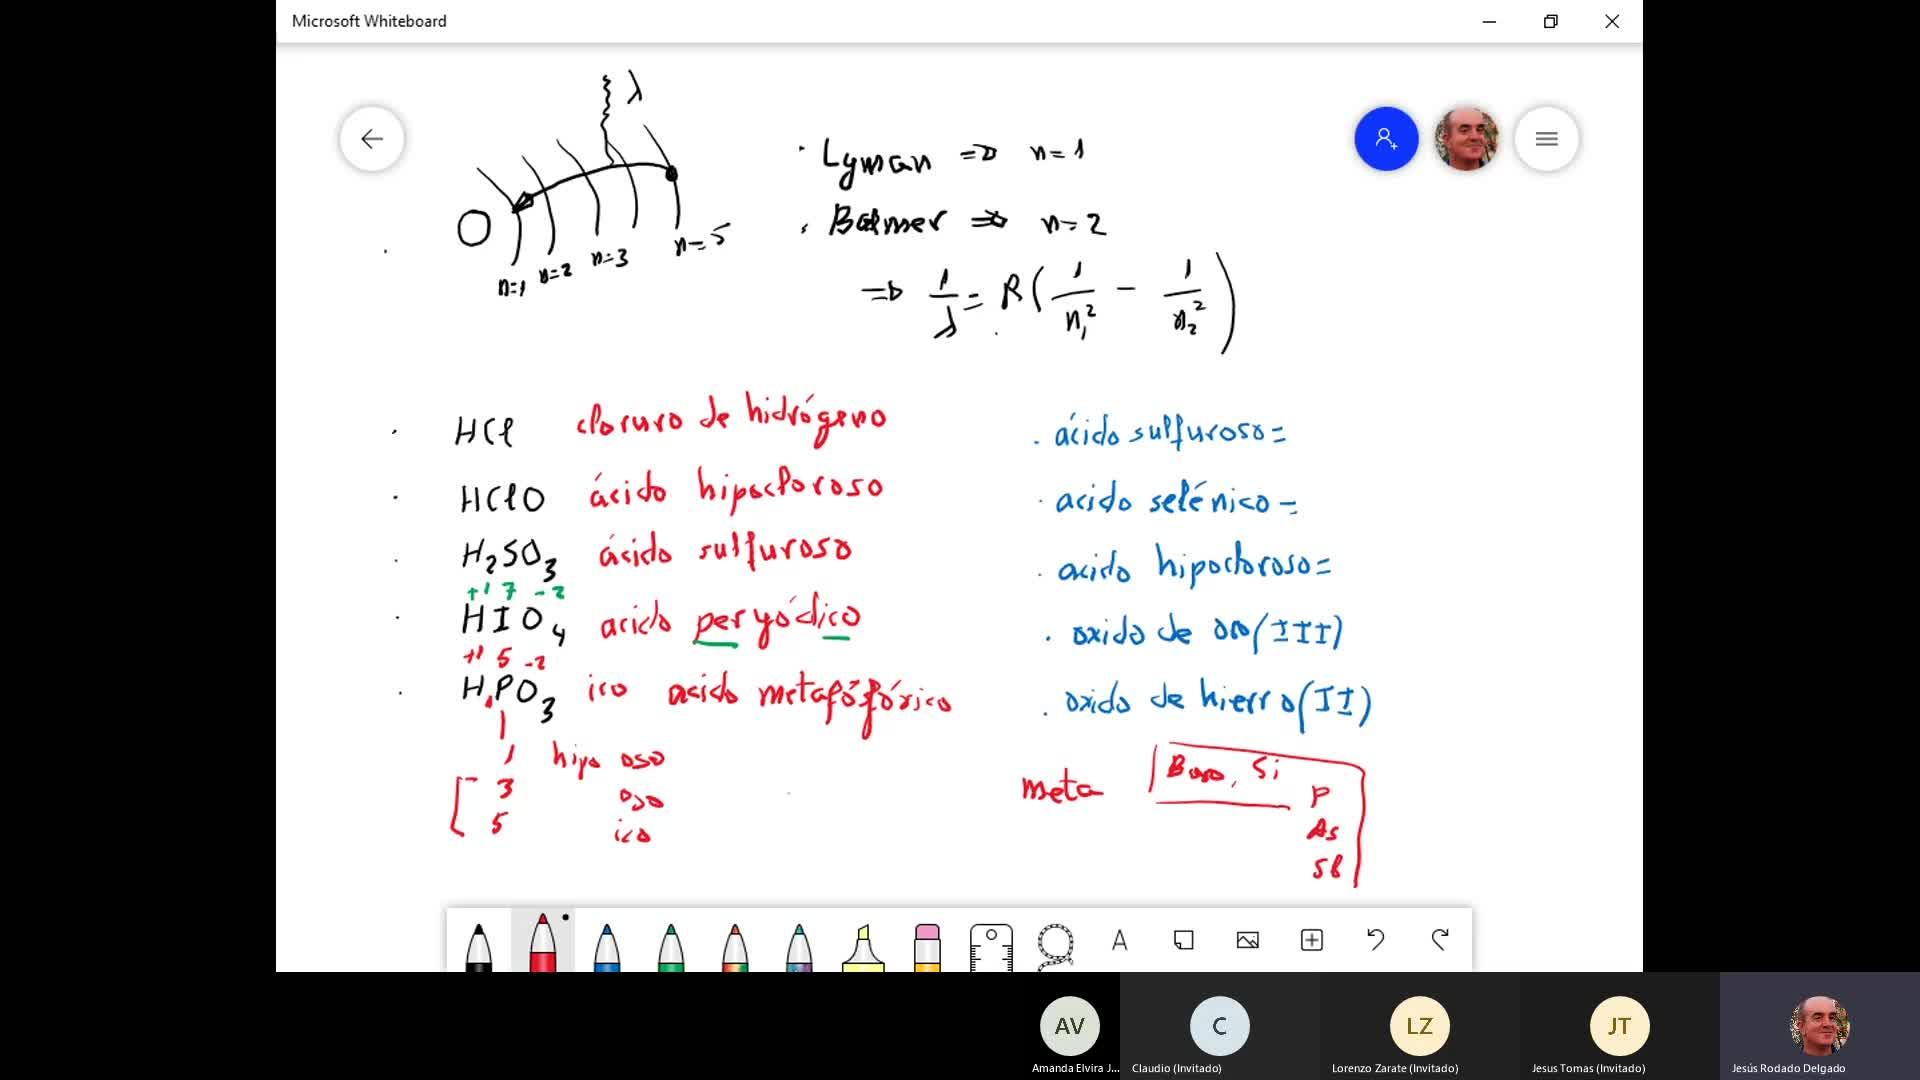 Microsoft Whiteboard
λ
O
n=1 n=2 n=3 n=5
· Lyman => n=1
· Balmer => n=2
=> 1/λ = R(1/n₁² - 1/n₂²)
· HCl cloruro de hidrógeno
· HClO ácido hipocloroso
· H₂SO₃ ácido sulfuroso
+1 7 -2
· HIO₄ acido peryódico
+1 5 -2
· HPO₃ ico acido metafósfórico
1
1 hipo oso
3 oso
5 ico
· ácido sulfuroso=
· acido selénico=
· acido hipocloroso=
· oxido de oro(III)
· oxido de hierro(II)
meta Boro, Si
P
As
Sb
A
AV C LZ JT
Amanda Elvira J... Claudio (Invitado) Lorenzo Zarate (Invitado) Jesus Tomas (Invitado) Jesús Rodado Delgado